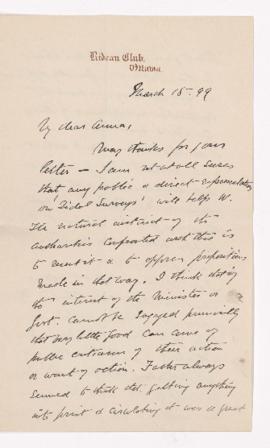 Rideau Club,
Ottawa.
March 15 - 99
My dear Anna,
Many thanks for your
letter — I am not at all sure
that any public or direct representation
on "Tidal Surveys" will help it.
The natural instinct of the
authorities confronted with this is
to resent it & to oppose propositions
made in that way. I think that if
the interest of the Minister or
Govt. cannot be engaged
that very little good can come of
public of their action
or want of action. Father always
seemed to think that getting anything
into print & circulating it was a great